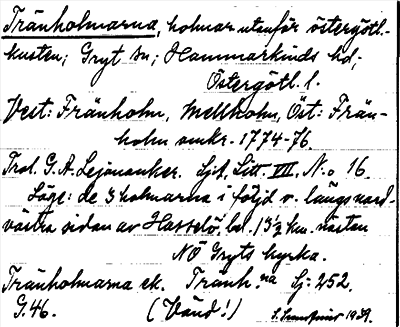 Tränholmarna, holmar utanför östergötl.-
kusten; Gryt sn; Hammarkinds hd;
Östergötl. l.
Väst: Fränholm, Mellholm, Öst: Frän-
holm omkr. 1774-76.
Trol. G. A. Lejonanker. Sjöf. Litt. VII, No 16.
Läge: de 3 holmarna i följd v. längs nord-
västra sidan av Hasselö, bel. 13½ km. nästan
NÖ Gryts kyrka.
Tränholmarna ek. Tränh.na Sj: 252.
G. 46. (Vänd!) 1939.